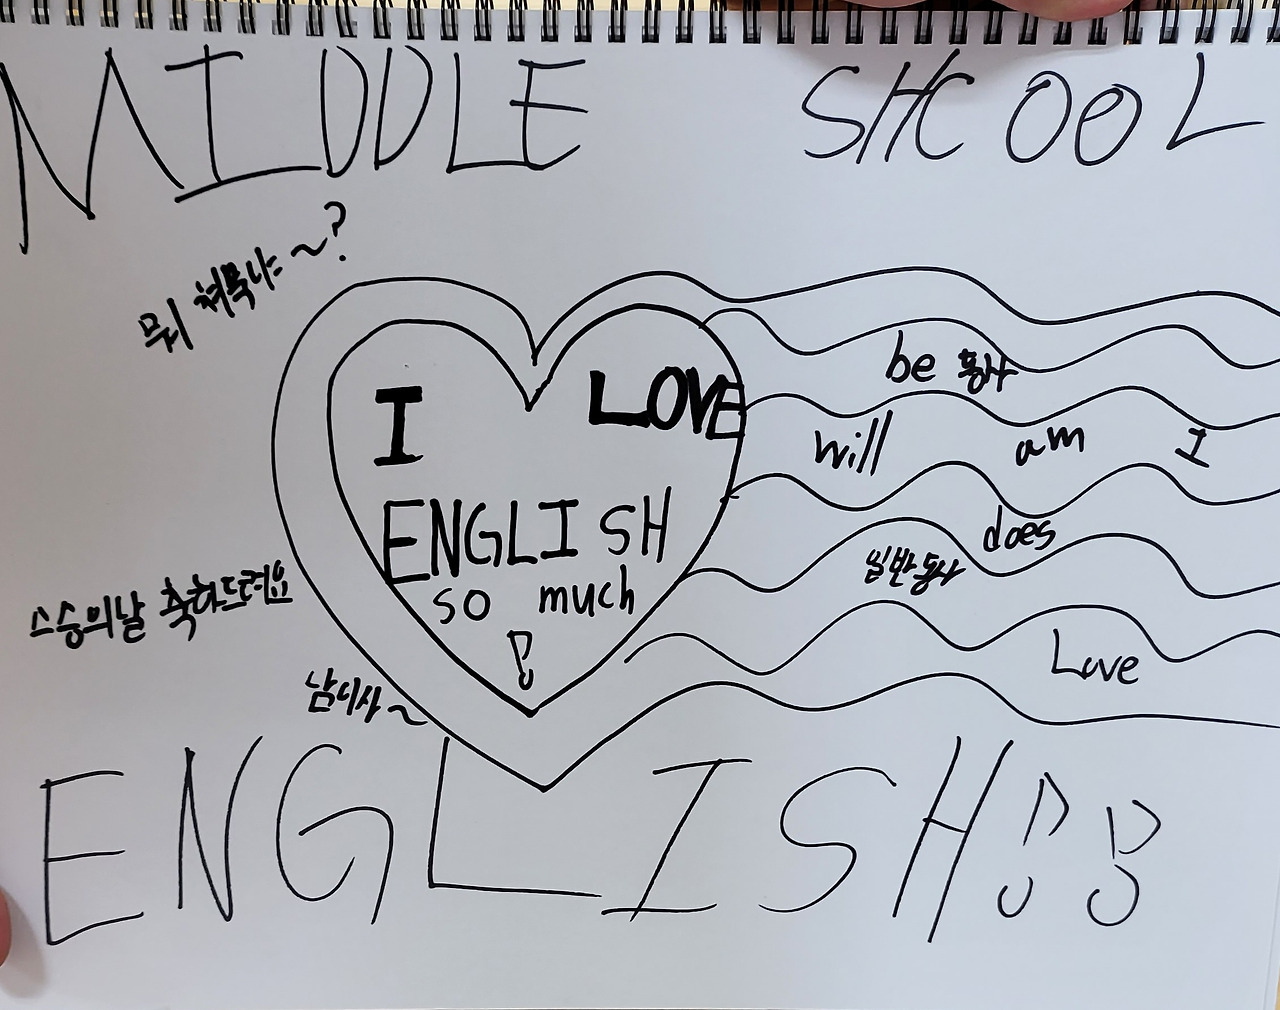 MIDDLE SHCOOL
뭐 쳐묵냐~?
I LOVE
ENGLISH
so much
!
be 동사
will am I
does
일반동사
Love
스승의날 축하드려요
남이사~
ENGLISH!!